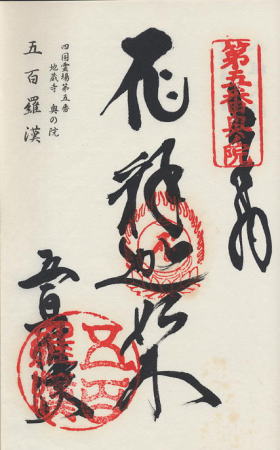 奉拝
第五番奥院
釈迦如来
五百羅漢
五百羅漢
四国霊場第五番
地蔵寺 奥の院
五百羅漢